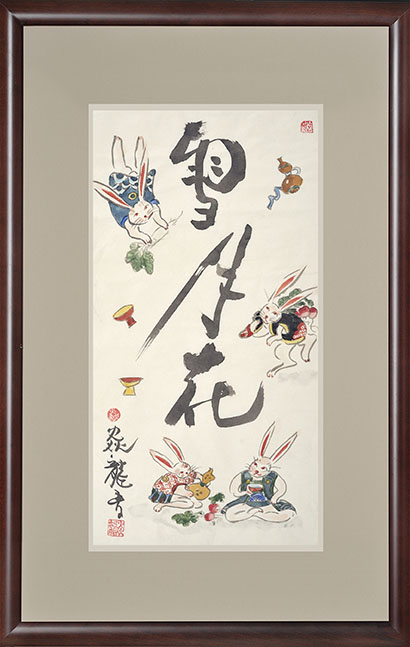 雪月花
龍書